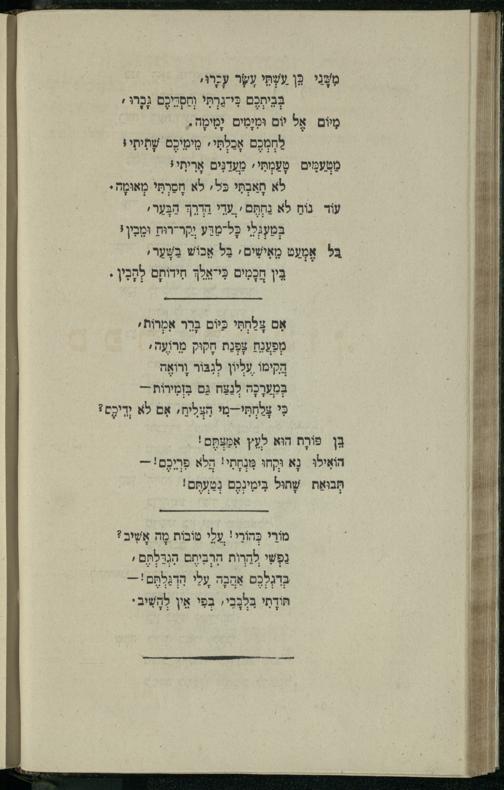 מִשָּׁנַי כֵּן עַשְׁתֵּי עָשָׂר עָבָרוּ,
בְּבֵיתְכֶם כִּי־גַרְתִּי וְחַסְדֵיכֶם גָּבָרוּ,
מִיּוֹם אֶל יוֹם וּמִיָּמִים יָמִימָה.
לַחְמְכֶם אָכַלְתִּי, מֵימֵיכֶם שָׁתִיתִי;
מַטְעַמִּים טָעַמְתִּי, מַעֲדַנִּים אָרִיתִי;
לֹא תָאַבְתִּי כֹּל, לֹא חָסַרְתִּי מְאוּמָה.
עוֹד נוֹחַ לֹא נַחְתֶּם, עֲדֵי הַדֶּרֶךְ הַבָּעַר,
בְּמַעְגְּלֵי כָל־מַדָּע יְקַר־רוּחַ וּמֵבִין;
בַּל אֶמְעַט מֵאִישִׁים, בַּל אֵבוֹשׁ בַּשָּׁעַר,
בֵּין חֲכָמִים כִּי־אֵלֵךְ חִידוֹתָם לְהָבִין.
אִם צָלַחְתִּי כַיּוֹם בָּרֵר אִמְרוֹת,
מְפַעְנֵחַ צָפְנַת חָקוּק מֵרוֹעֶה,
הֲקִימוֹ עֶלְיוֹן לְגִבּוֹר וָרוֹאֶה
בְּמַעֲרָכָה לְנַצֵּחַ גַּם בִּזְמִירוֹת—
כִּי צָלַחְתִּי—מִי הִצְלִיחַ, אִם לֹא יְדֵיכֶם?
בֵּן פּוֹרָת הוּא לְעֵץ אִמַּצְתֶּם!
הוֹאִילוּ נָא וּקְחוּ מִנְחָתִי! הֲלֹא פִרְיְכֶם!—
תְּבוּאַת שָׁתוּל בִּימִינְכֶם נְטַעְתֶּם!
מוֹרַי כְּהוֹרַי! עֲלֵי טוֹבוֹת מָה אָשִׁיב?
נַפְשִׁי לְהַרְוֹת הִרְבֵּיתֶם הִגְדַּלְתֶּם,
בְּדִגְלְכֶם אַהֲבָה עָלַי הִדְגַּלְתֶּם!—
תּוֹדָתִי בִּלְבָבִי, בְּפִי אֵין לְהָשִׁיב.